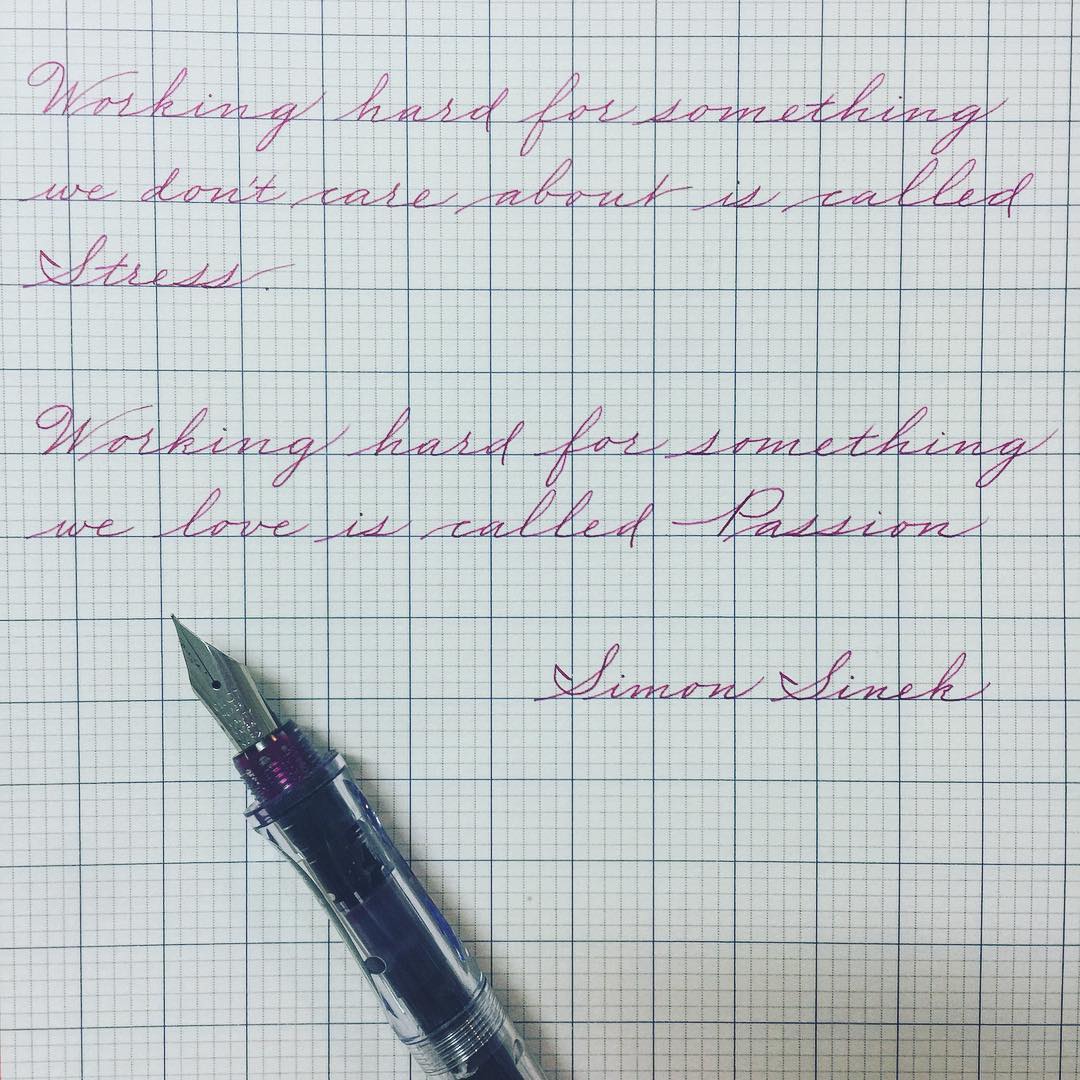 Working hard for something
we don't care about is called
Stress.
Working hard for something
we love is called Passion
Simon Sinek